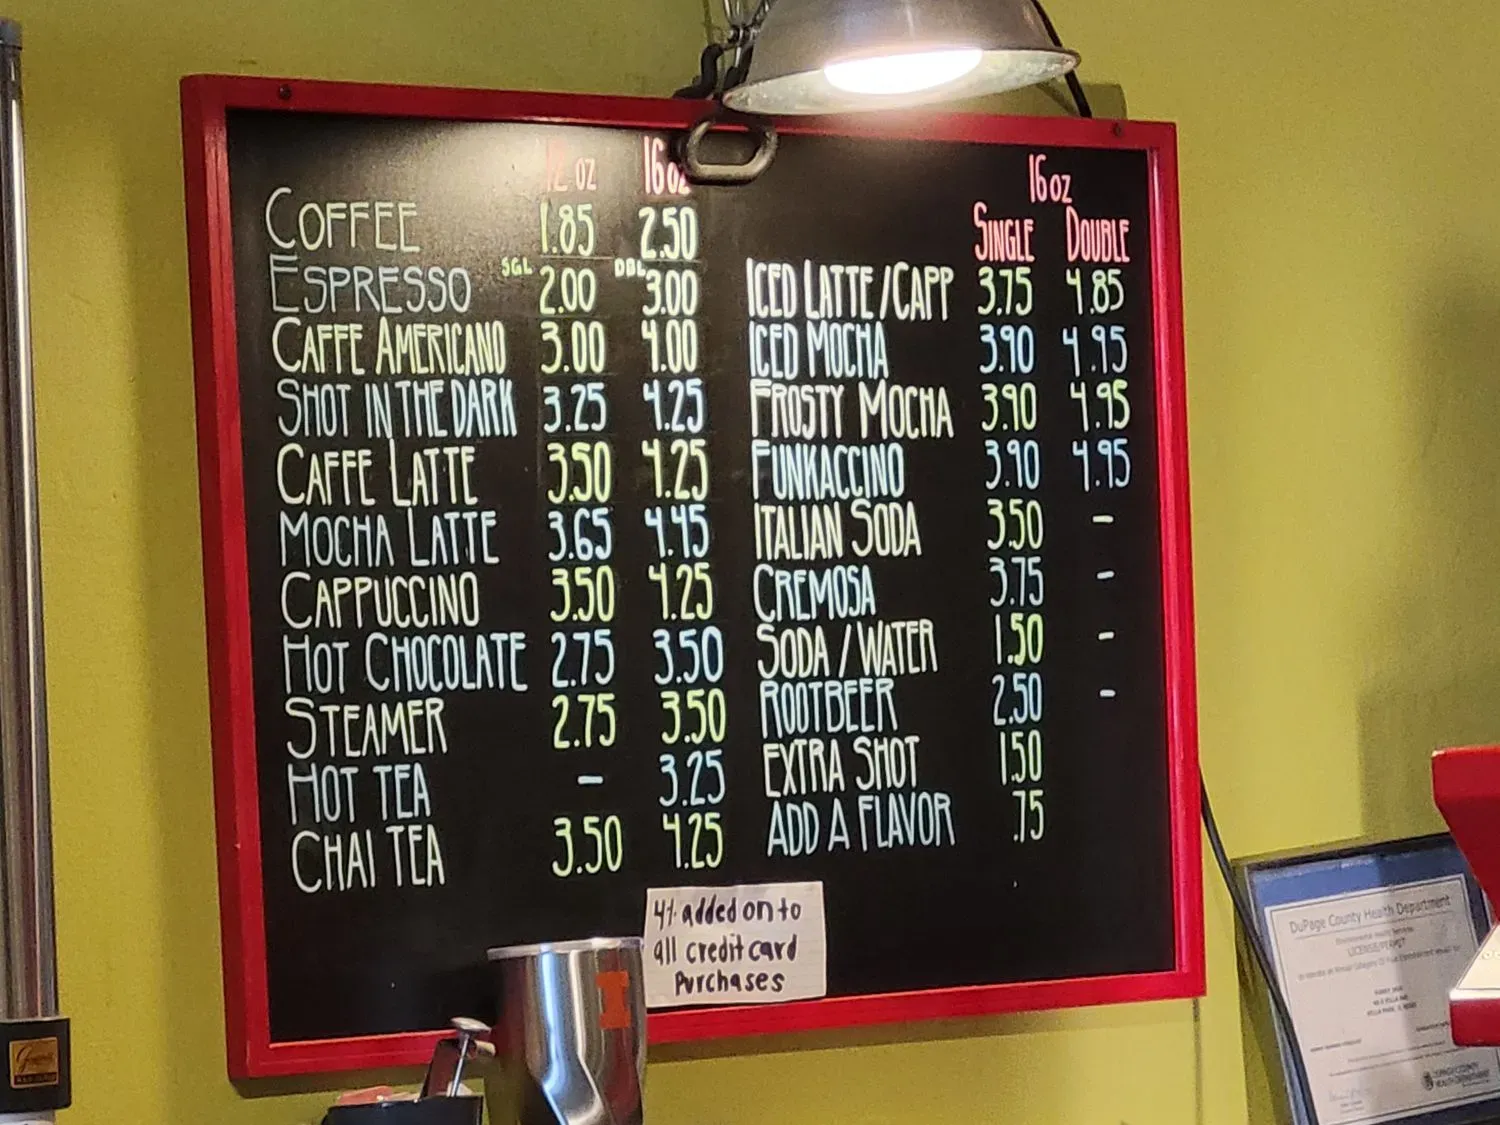 12 oz 16 oz
COFFEE 1.85 2.50
ESPRESSO SGL 2.00 DBL 3.00
CAFFE AMERICANO 3.00 4.00
SHOT IN THE DARK 3.25 4.25
CAFFE LATTE 3.50 4.25
MOCHA LATTE 3.65 4.45
CAPPUCCINO 3.50 4.25
HOT CHOCOLATE 2.75 3.50
STEAMER 2.75 3.50
HOT TEA – 3.25
CHAI TEA 3.50 4.25
16 oz
SINGLE DOUBLE
ICED LATTE/CAPP 3.75 4.85
ICED MOCHA 3.90 4.95
FROSTY MOCHA 3.90 4.95
FUNKACCINO 3.90 4.95
ITALIAN SODA 3.50 –
CREMOSA 3.75 –
SODA/WATER 1.50 –
ROOTBEER 2.50 –
EXTRA SHOT 1.50
ADD A FLAVOR .75
4% added on to
all credit card
purchases
I
DuPage County Health Department
LICENSE/PERMIT
DUPAGE COUNTY
HEALTH DEPARTMENT